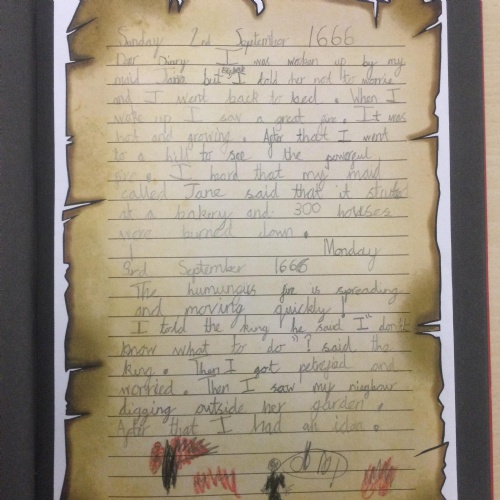 Sunday 2nd September 1666
Dear Diary I was woken up by my
maid Jane but I told her not to worrie
and I went back to bed. When I
woke up I saw a great fire. It was
hot and growing. After that I went
to a hill to see the powerful
fire. I hard that my maid
called Jane said that it started
at a bakery and 300 houses
were burned down.
Monday
3rd September 1666
The humungus fire is spreading
and moving quickly!
I told the king he said I "don't
know what to do"? said the
king. Then I got petrefid and
worried. Then I saw my niegbour
digging outside her garden.
After that I had an idea.